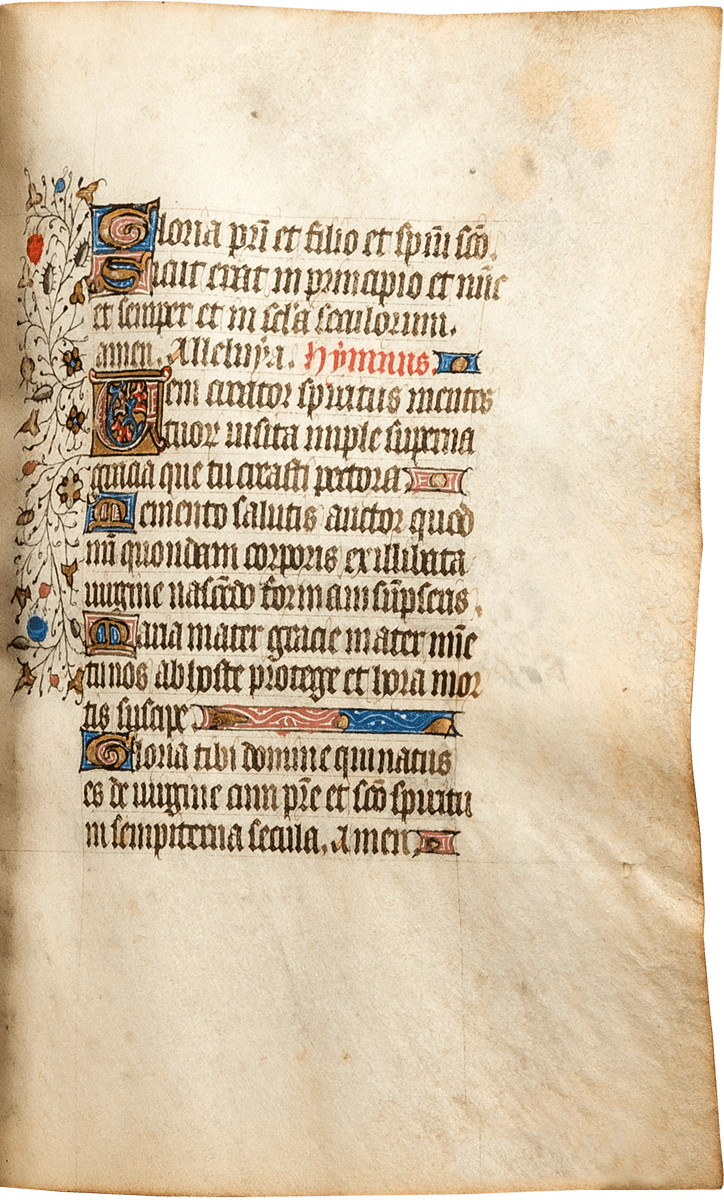 Gloria pri et filio et spiui sco.
Sicut erat in principio et nuc
et semper et in scla seculorum.
amen. Alleluya. Hymnus.
Ueni creator spiritus mentes
tuor uisita imple superna
gracia que tu creasti pectora
Memento salutis auctor quod
nri quondam corporis ex illibata
uirgine nascedo formam supseris.
Maria mater gracie mater mie
tu nos ab hoste protege et hora mor
tis suscipe
Gloria tibi domine qui natus
es de uirgine cum pre et sco spiritu
in sempiterna secula. Amen